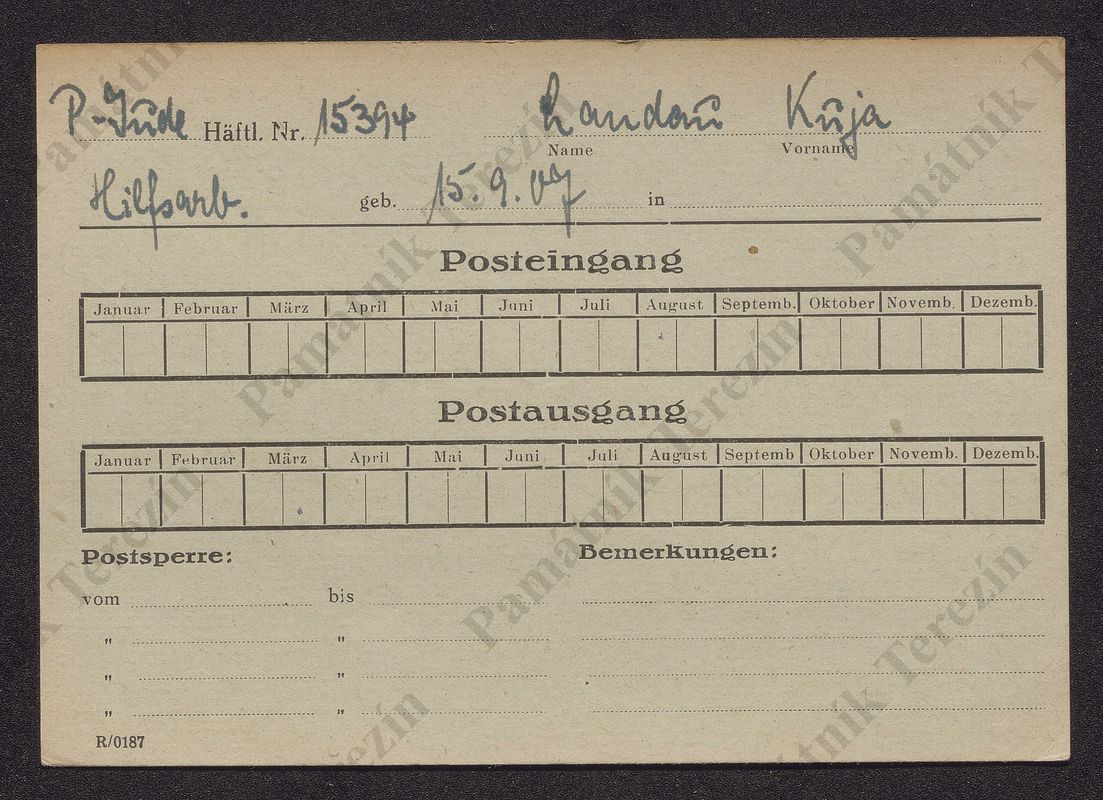 P-Jude Häftl. Nr. 15394 Landau Kuja
Name Vorname
Hilfsarb. geb. 15.9.07 in
Posteingang
Januar Februar März April Mai Juni Juli August Septemb. Oktober Novemb. Dezemb.
Postausgang
Januar Februar März April Mai Juni Juli August Septemb Oktober Novemb. Dezemb.
Postsperre: Bemerkungen:
vom bis
" "
" "
" "
R/0187
Památník Terezín